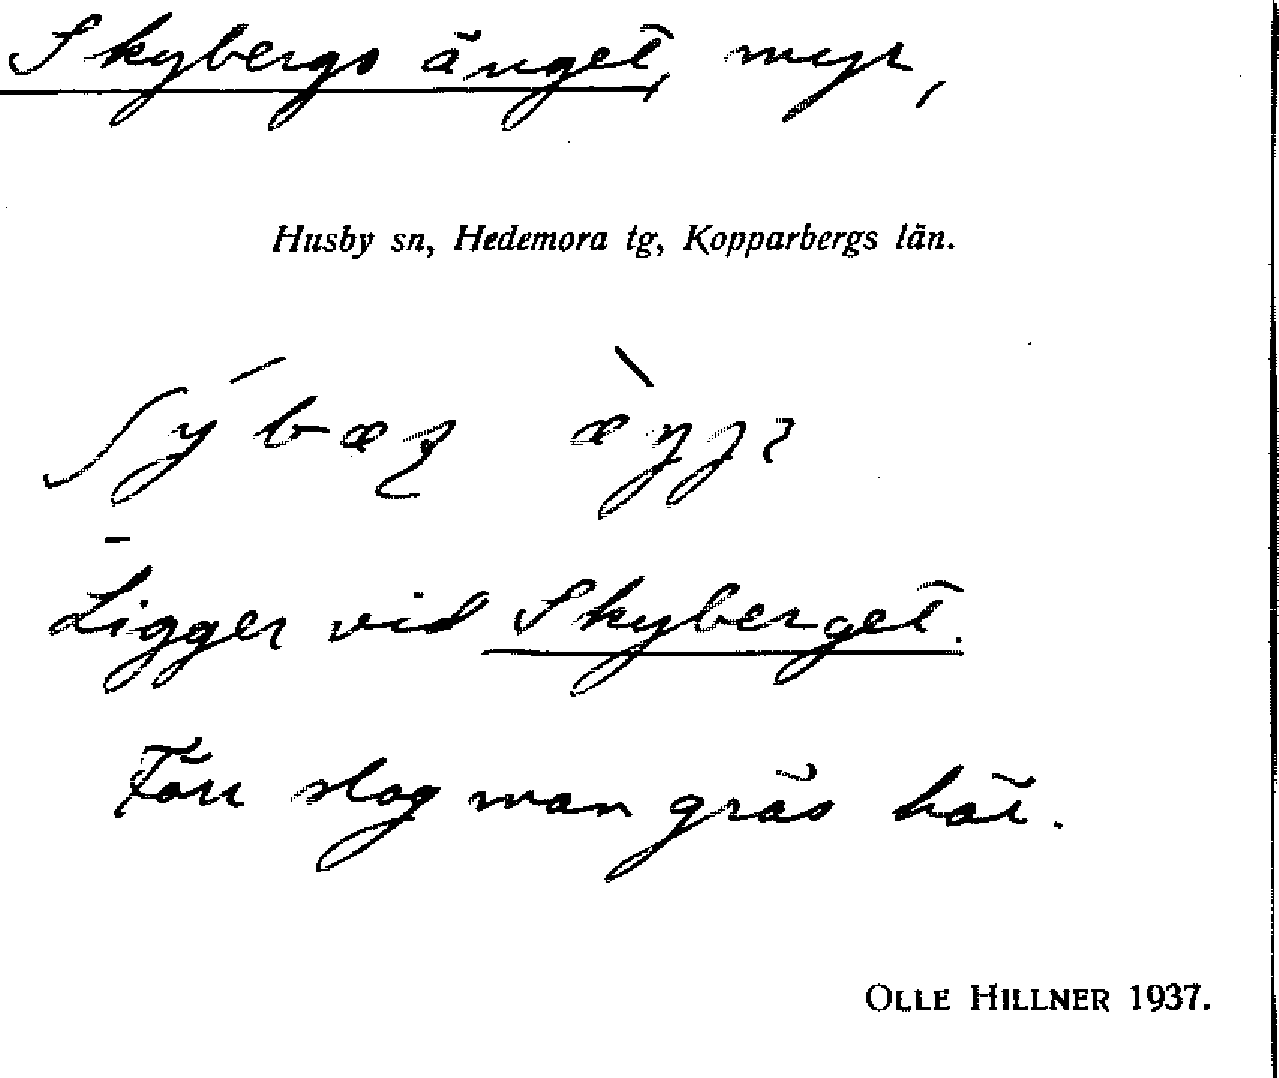 Skybergs änget, myr,
Husby sn, Hedemora tg, Kopparbergs län.
Ligger vid Skyberget.
Förr slog man gräs
OLLE HILLNER 1937.